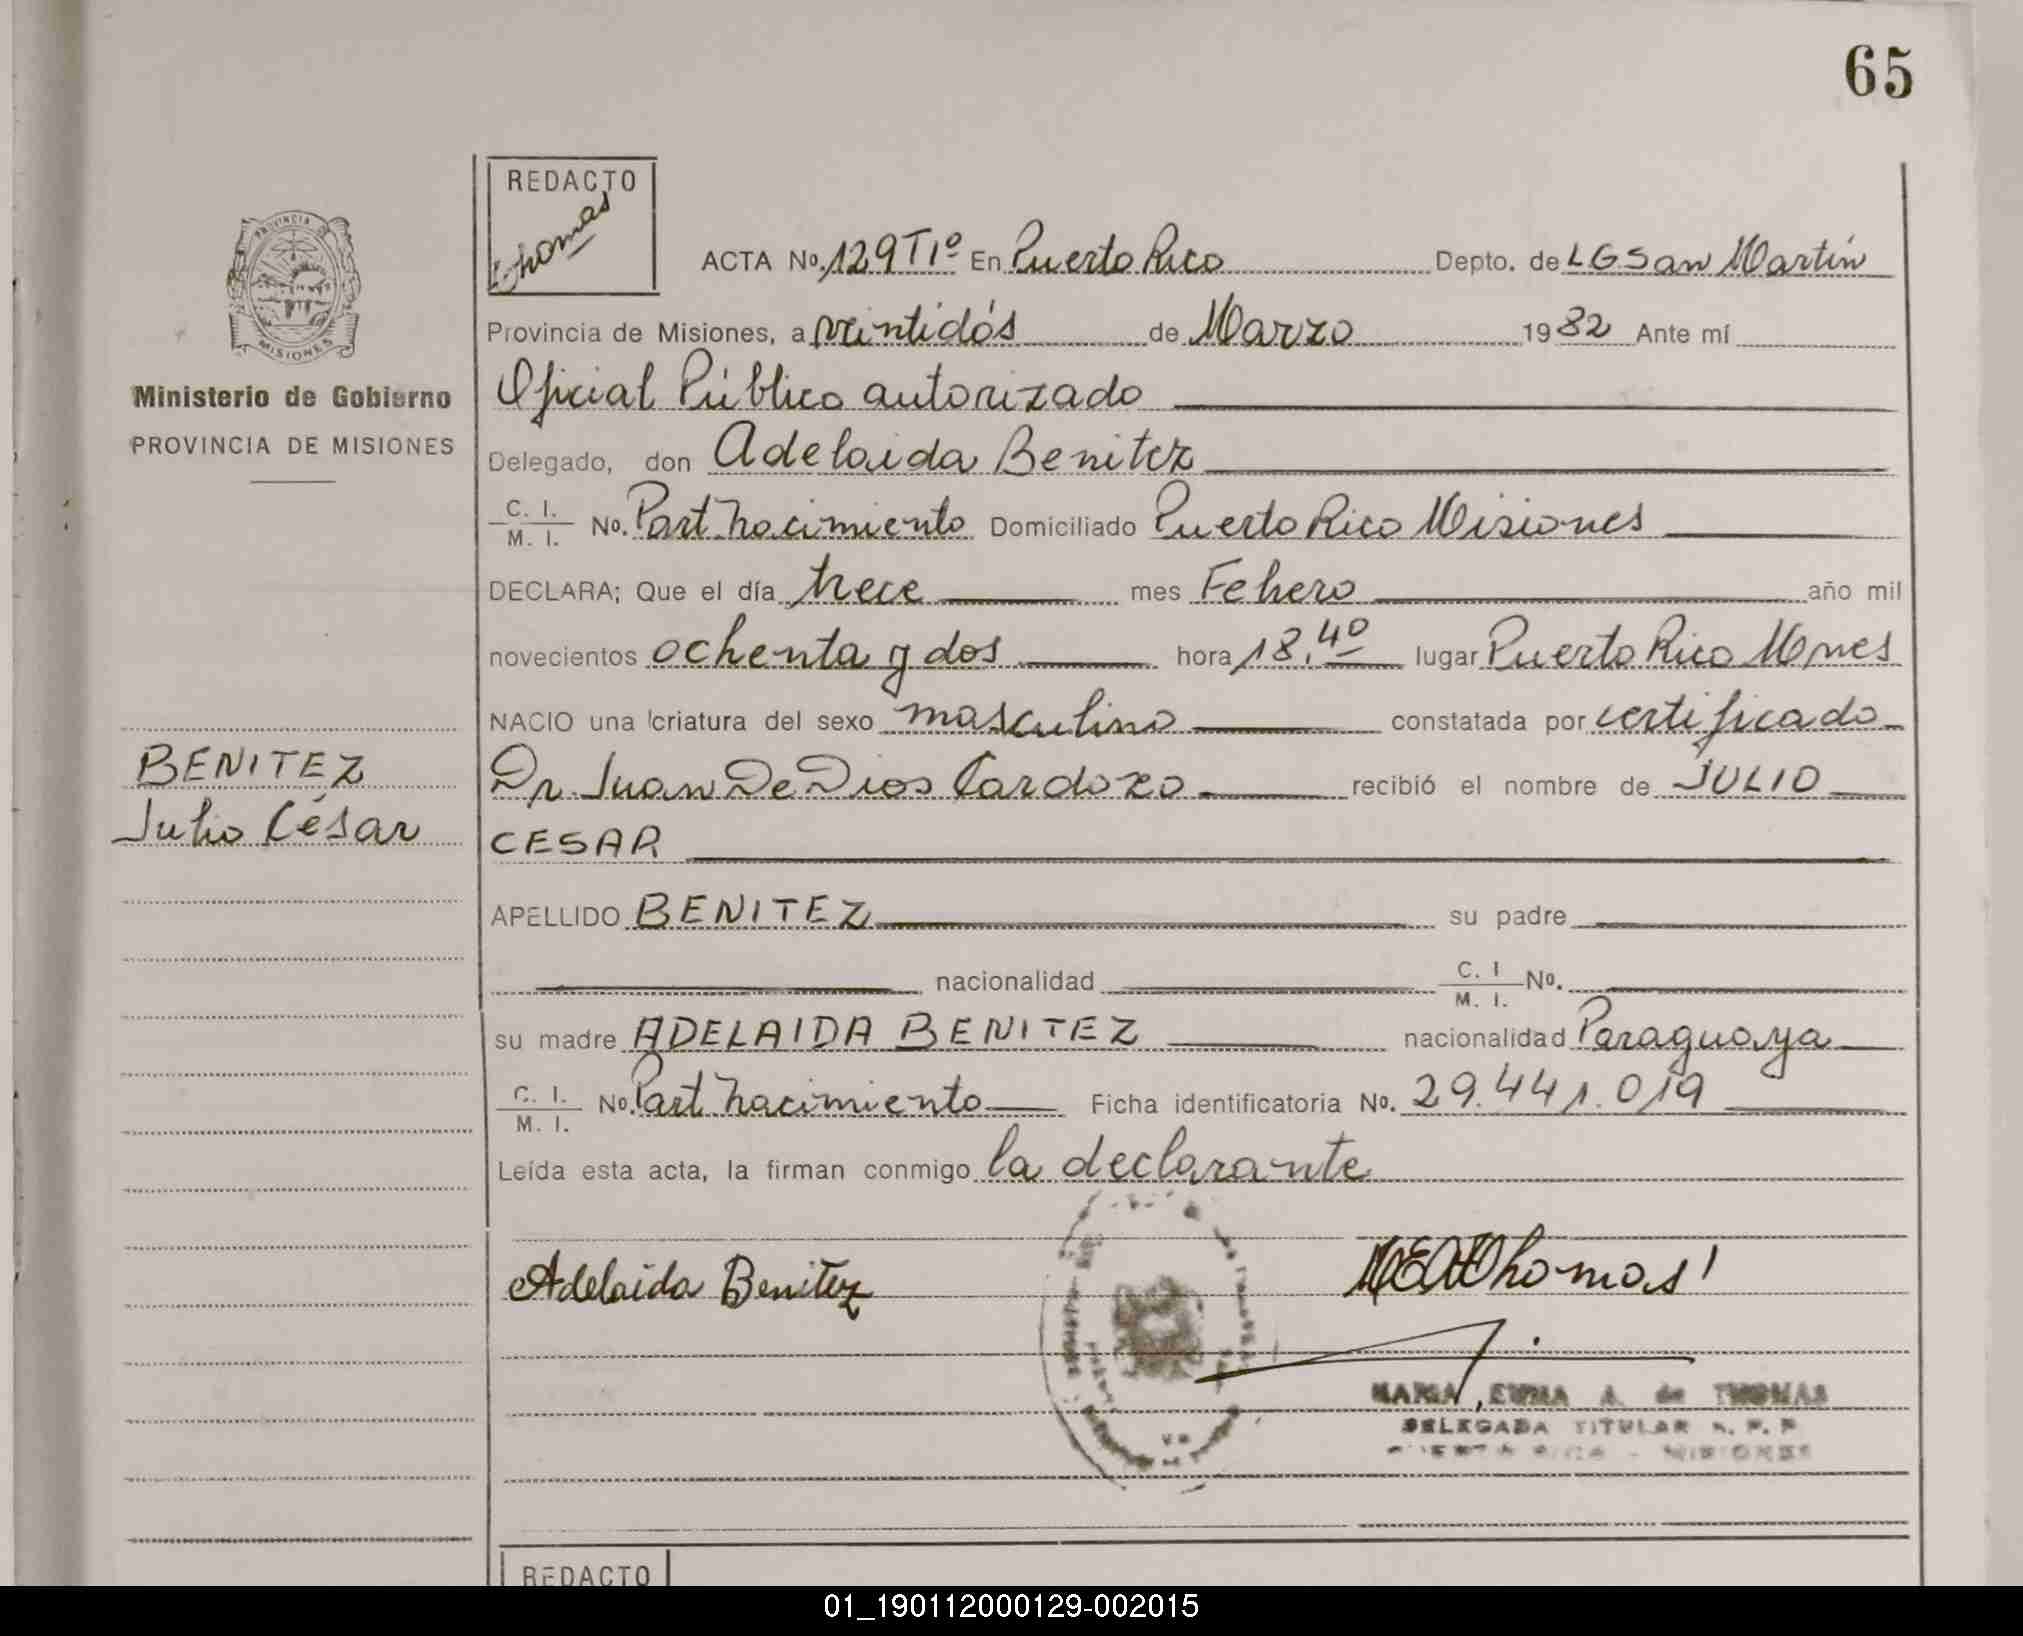 65
REDACTO
Thomas
ACTA No. 129 T1º En Puerto Rico Depto. de LGSan Martín
PROVINCIA
MISIONES
Provincia de Misiones, a veintidós de Marzo 1982 Ante mí
Ministerio de Gobierno
PROVINCIA DE MISIONES
Oficial Público autorizado
Delegado, don Adelaida Benitez
C. I.
M. I. No. Part Nacimiento Domiciliado Puerto Rico Misiones
DECLARA; Que el día trece mes Febrero año mil
novecientos ochenta y dos hora 18.40 lugar Puerto Rico Mnes
NACIO una criatura del sexo masculino constatada por certificado
BENITEZ
Julio César
Dr. Juan De Dios Cardozo recibió el nombre de JULIO
CESAR
APELLIDO BENITEZ su padre
nacionalidad C. I
M. I. No.
su madre ADELAIDA BENITEZ nacionalidad Paraguaya
C. I.
M. I. No. Part Nacimiento Ficha identificatoria No. 29.441.019
Leída esta acta, la firman conmigo la declarante
Adelaida Benitez
MEAThomas
MARIA EMMA A. de THOMAS
DELEGADA TITULAR R. P. P
PUERTO RICO - MISIONES
REDACTO
01_190112000129-002015